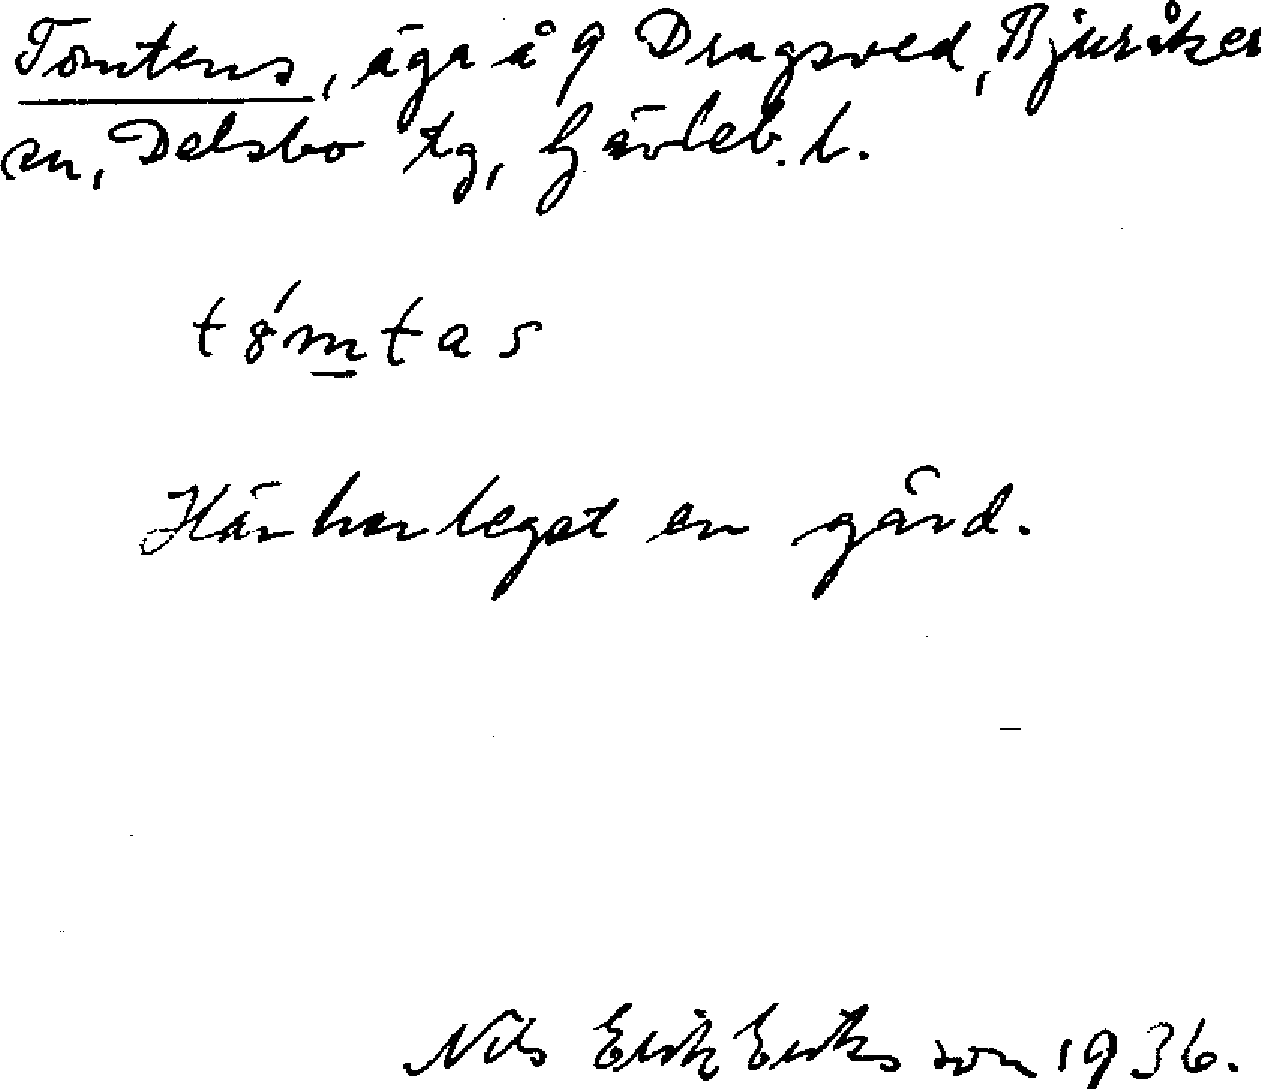 Tomtens, äga å 9 Dragsved, Bjuråker
sn, Delsbo tg, Gävleb. l.
tǿmtas
Här har legat en gård.
Nils Erik Eriksson 1936.